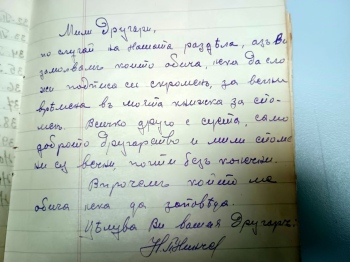 Мили Другари,
по случай на нашата раздѣла, азъ Ви
замолвамъ който обича, нека да сло-
жи подписа си скроменъ, за вечни
врѣмена въ моята книжка за спо-
менъ. Всичко друго е суета, само
доброто другарство и мили споме-
ни сѫ вечни, почти безъ конечни.
Впрочемъ който ме
обича нека да заповѣда.
Цѣлува Ви вашия другарь: